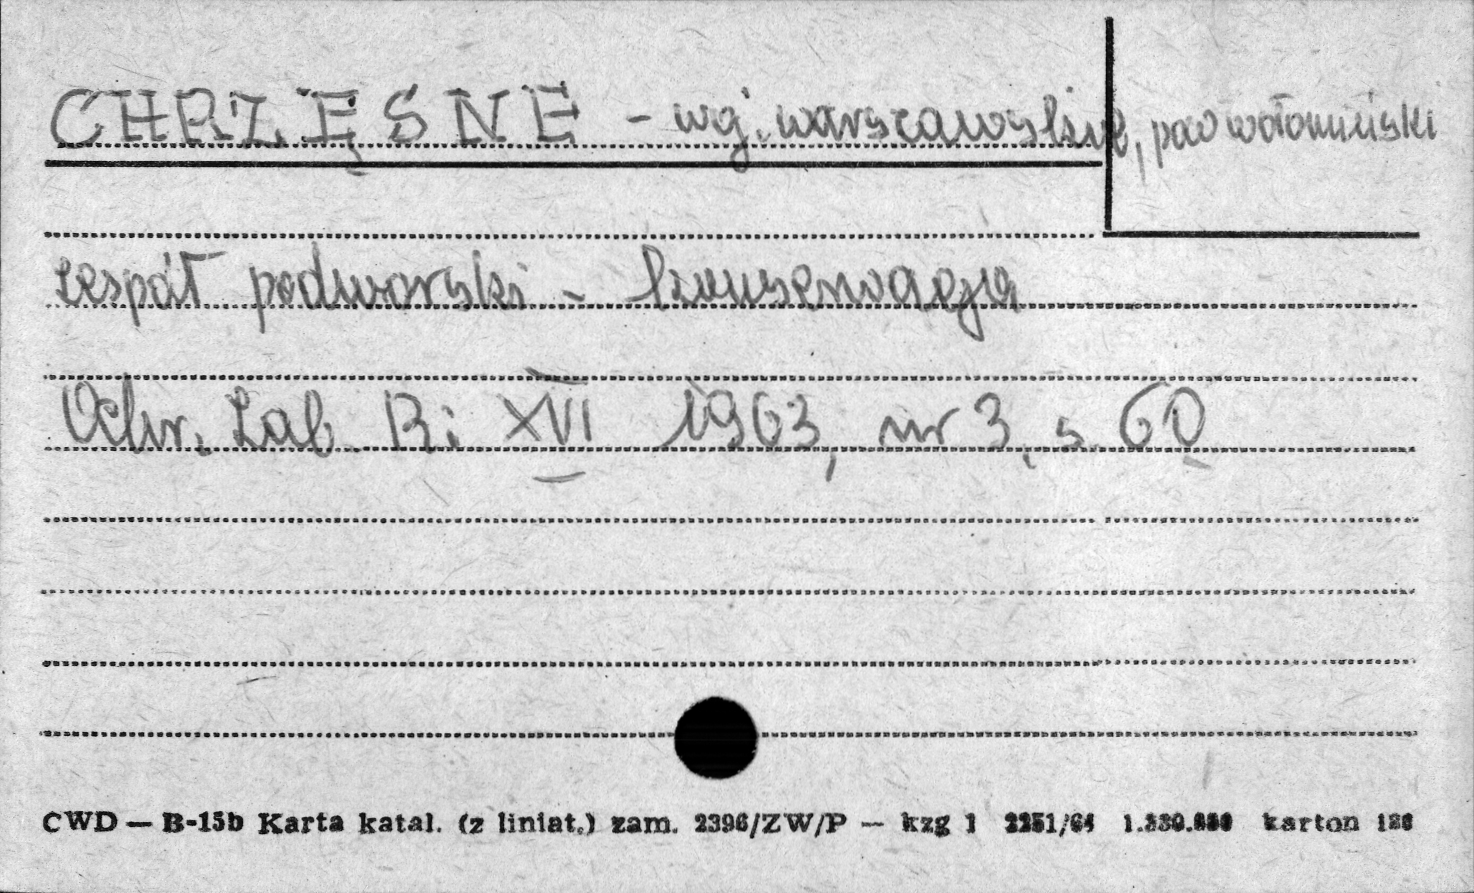 CHRZĘSNE - woj. warszawskie, pow wołomiński
zespół podworski - konserwacja
Ochr. Zab. R: XVI 1963, nr 3, s. 60
CWD — B-15b Karta katal. (z liniat.) zam. 2396/ZW/P — kzg 1 2251/64 karton